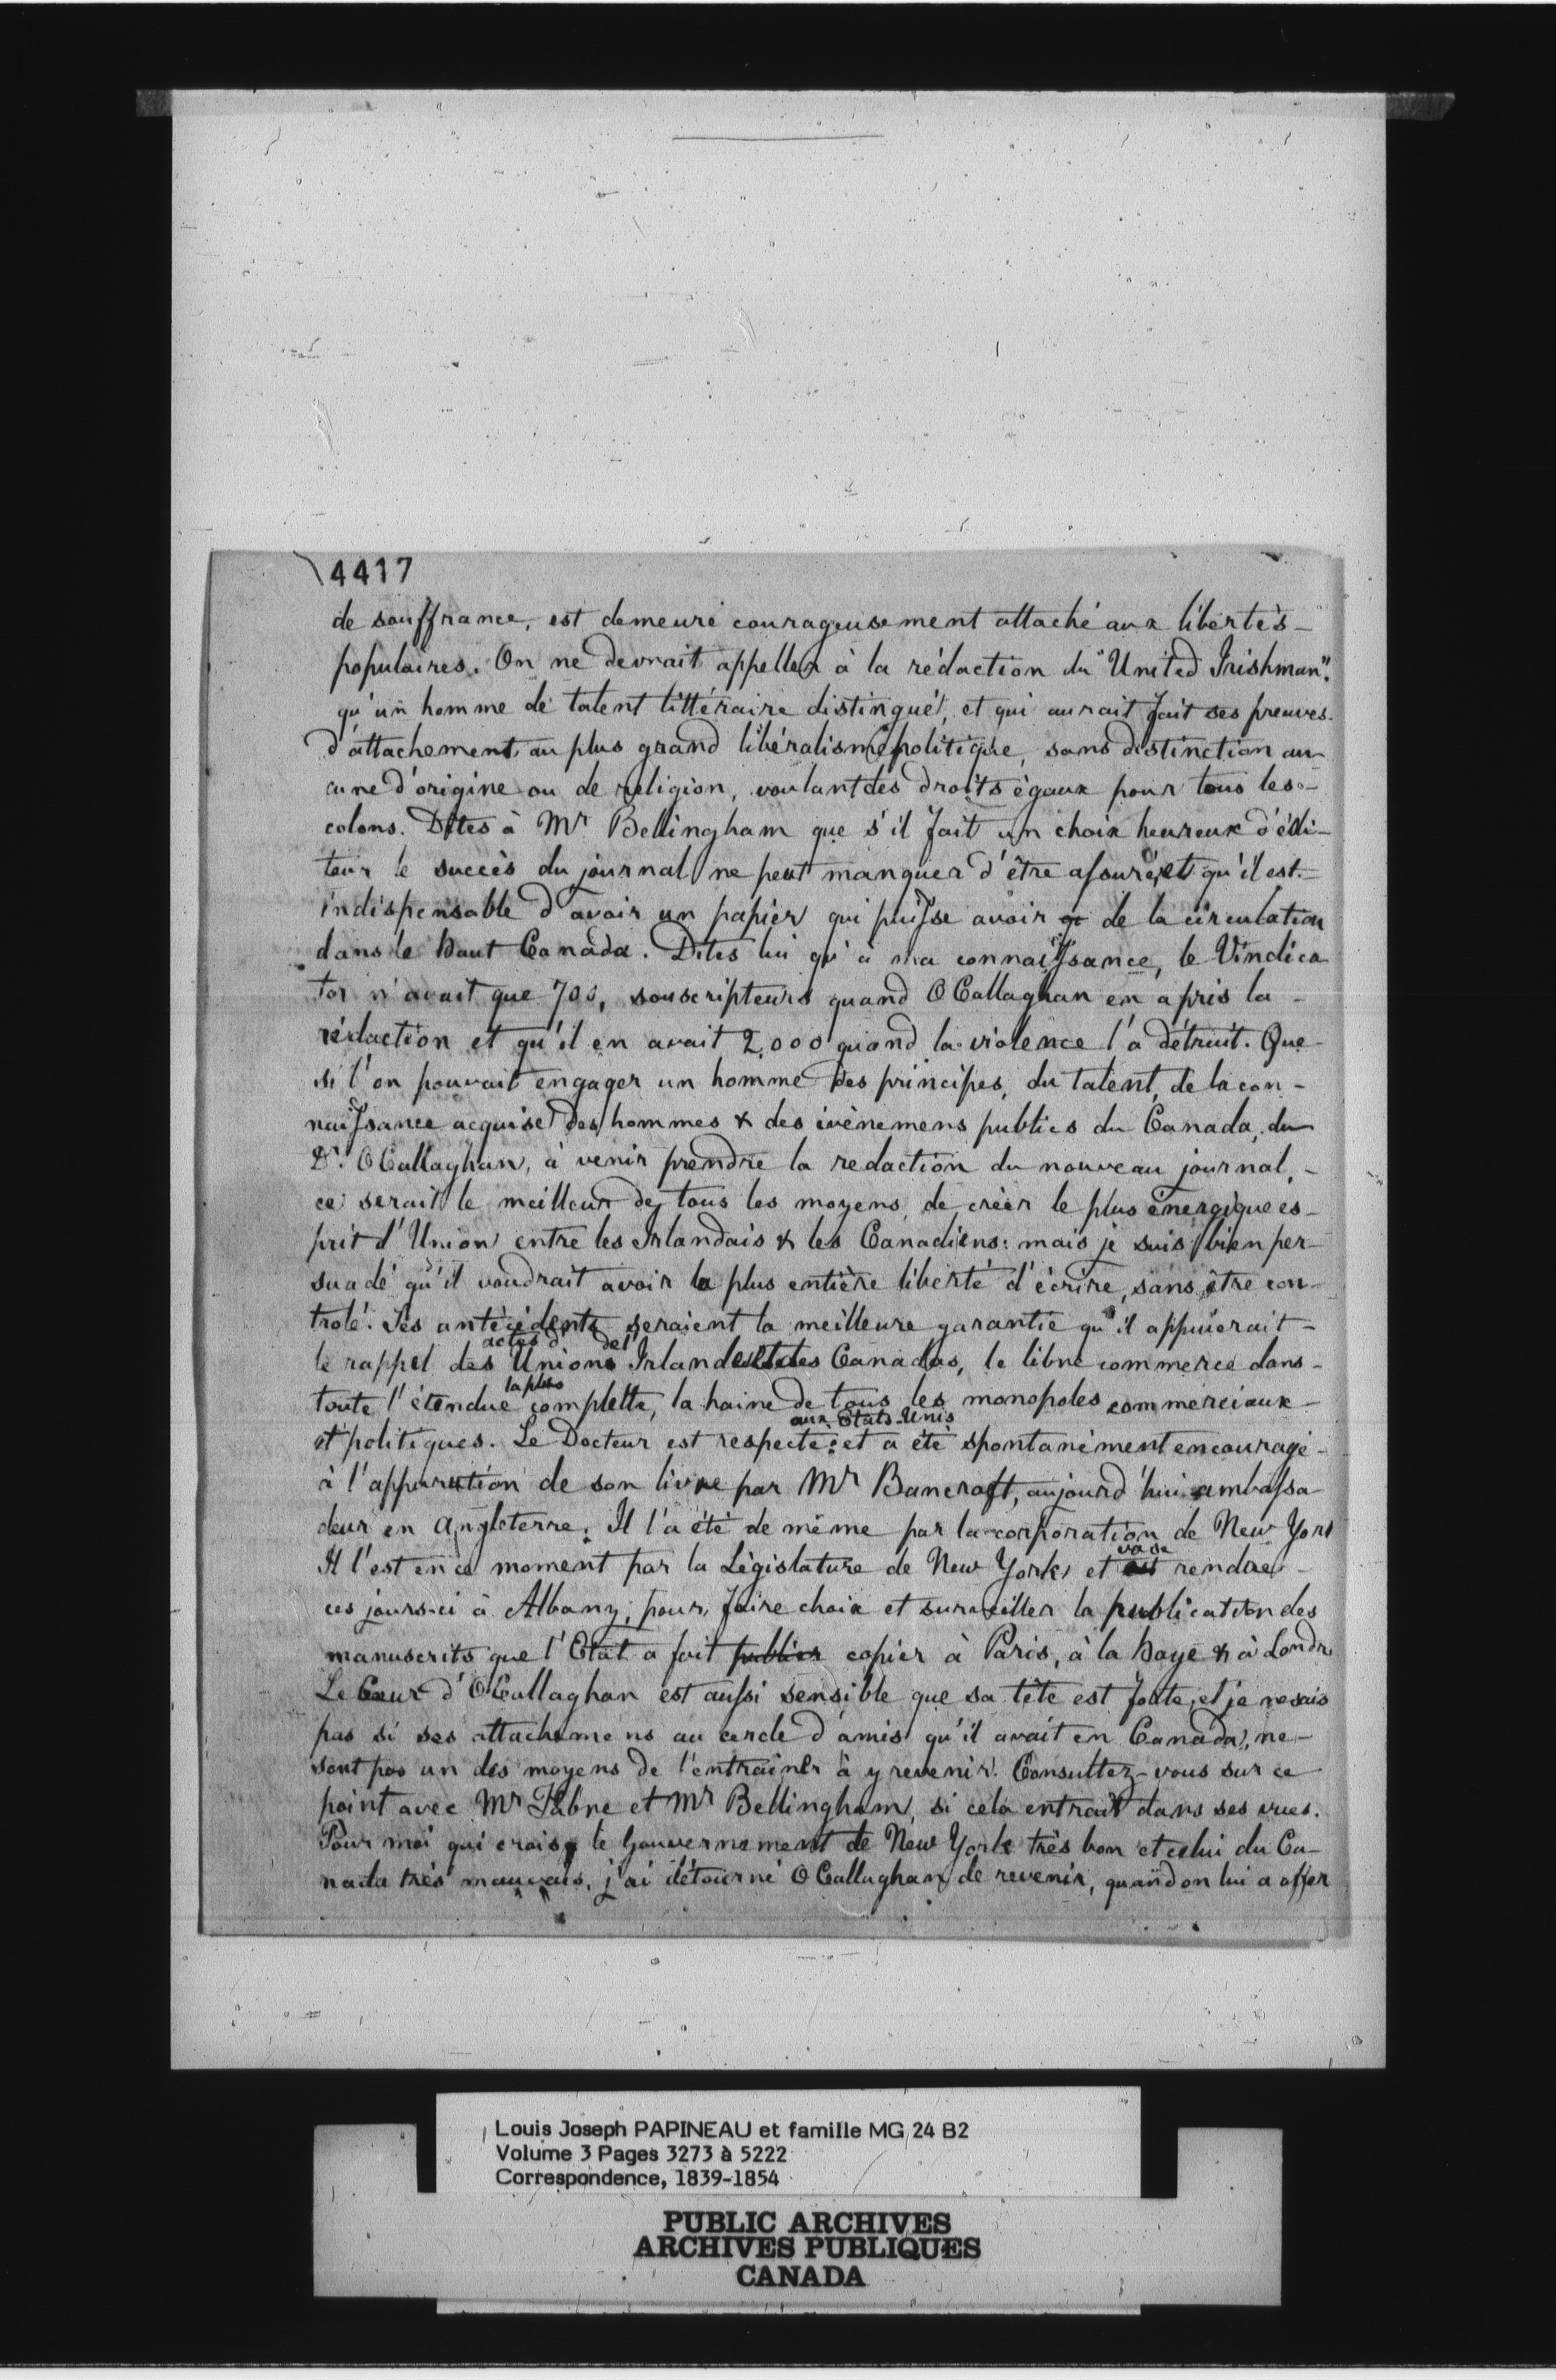 4417
de souffrance, est demeuré courageusement attaché aux libertés-
populaires. On ne devrait appeller à la rédaction du "United Irishman".
qu'un homme de talent littéraire distingué, et qui aurait fait ses preuves.
d'attachement au plus grand libéralisme politique, sans distinction au-
cune d'origine ou de religion, voulant des droits égaux pour tous les-
colons. Dites à Mr Bellingham que s'il fait un choix heureux d'édi-
teur le succès du journal ne peut manquer d'être assuré, et qu'il est-
indispensable d'avoir un papier qui puisse avoir de la circulation
dans le haut Canada. Dites lui qu'à ma connaissance, le Vindica
tor n'avait que 700, souscripteurs quand OCallaghan en a pris la-
rédaction et qu'il en avait 2,000 quand la violence l'a détruit. Que-
si l'on pouvait engager un homme des principes, du talent, de la con-
naissance acquise des hommes & des évènemens publics du Canada, du
Dr. OCallaghan, à venir prendre la redaction du nouveau journal,-
ce serait le meilleur de tous les moyens, de créer le plus énergique es-
prit d'Union entre les Irlandais & les Canadiens: mais je suis bien per-
suadé qu'il voudrait avoir la plus entière liberté d'écrire, sans être con-
trolé. Ses antécédents seraient la meilleure garantie qu'il appuierait-
actes d' de l'
le rappel des Unions Irlande et des Canadas, le libre commerce dans-
la plus
toute l'étendue complette, la haine de tous les monopoles commerciaux-
aux États-Unis
et politiques. Le Docteur est respecté: et a été spontanément encouragé-
à l'apparution de son livre par Mr Bancroft, aujourd'hui ambassa
deur en Angleterre. Il l'a été de même par la corporation de New York
va se
Il l'est en ce moment par la Législature de New York, et est rendre-
ces jours-ci à Albany, pour faire choix et surveiller la publication des
manuscrits que l'Etat a fait publier copier à Paris, à la haye & à Londre
Le Cœur d'OCallaghan est aussi sensible que sa tête est forte, et je ne sais
pas si ses attachemens au cercle d'amis qu'il avait en Canada, ne-
sont pas un des moyens de l'entrainer à y revenir. Consultez-vous sur ce
point avec Mr Fabre et Mr Bellingham, si cela entrait dans ses vues.
Pour moi qui crois le Gouvernement de New York très bon et celui du Ca-
nada très mauvais, j'ai détourné OCallaghan de revenir, quand on lui a offer
Louis Joseph PAPINEAU et famille MG 24 B2
Volume 3 Pages 3273 à 5222
Correspondence, 1839-1854
PUBLIC ARCHIVES
ARCHIVES PUBLIQUES
CANADA